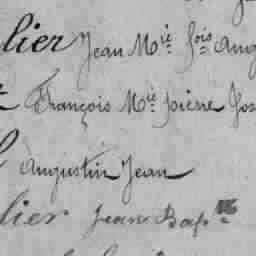 lier Jean Mie fois Aug
François Mie pierre Jos
Augustin Jean
lier Jean Bapte